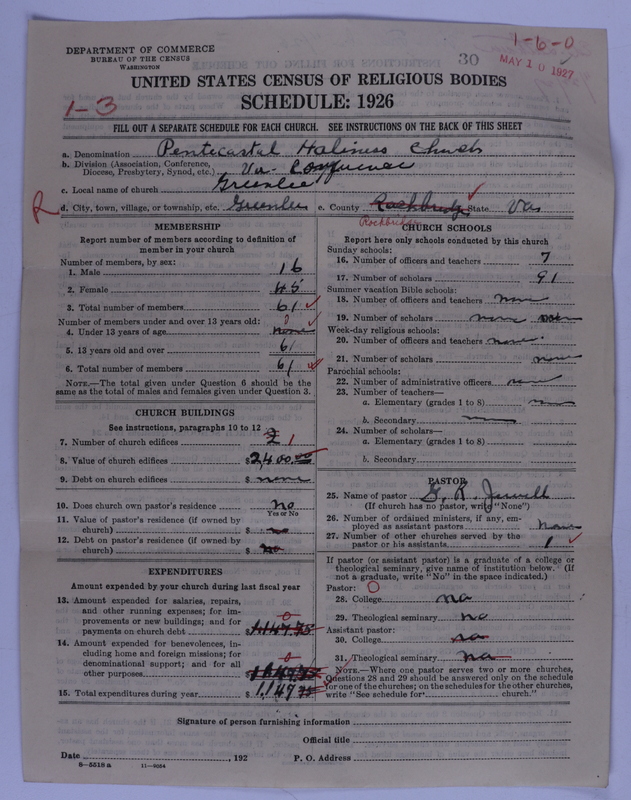 1-6-0
DEPARTMENT OF COMMERCE
BUREAU OF THE CENSUS
WASHINGTON
30
MAY 10 1927
UNITED STATES CENSUS OF RELIGIOUS BODIES
1-3
SCHEDULE: 1926
FILL OUT A SEPARATE SCHEDULE FOR EACH CHURCH. SEE INSTRUCTIONS ON THE BACK OF THIS SHEET
a. Denomination Pentecostal Holiness Church
b. Division (Association, Conference, Diocese, Presbytery, Synod, etc.) Va- Conference
c. Local name of church Greenlee
R d. City, town, village, or township, etc. Greenlee e. County Rockbridge State Va
Rockbridge
MEMBERSHIP
Report number of members according to definition of
member in your church
Number of members, by sex:
1. Male 16
2. Female 45
3. Total number of members 61
Number of members under and over 13 years old: 0
4. Under 13 years of age none
5. 13 years old and over 61
6. Total number of members 61
NOTE.—The total given under Question 6 should be the
same as the total of males and females given under Question 3.
CHURCH BUILDINGS
See instructions, paragraphs 10 to 12
7. Number of church edifices 1
8. Value of church edifices $2,400.00
9. Debt on church edifices $ none
10. Does church own pastor's residence no
Yes or No
11. Value of pastor's residence (if owned by
church) $ no
12. Debt on pastor's residence (if owned by
church) $ no
EXPENDITURES
Amount expended by your church during last fiscal year
13. Amount expended for salaries, repairs,
and other running expenses; for im-
provements or new buildings; and for 0
payments on church debt $1,149.75
14. Amount expended for benevolences, in-
cluding home and foreign missions; for
denominational support; and for all 0
other purposes $
15. Total expenditures during year $1,149.75
CHURCH SCHOOLS
Report here only schools conducted by this church
Sunday schools:
16. Number of officers and teachers 7
17. Number of scholars 91
Summer vacation Bible schools:
18. Number of officers and teachers none
19. Number of scholars none
Week-day religious schools:
20. Number of officers and teachers none
21. Number of scholars none
Parochial schools:
22. Number of administrative officers none
23. Number of teachers—
a. Elementary (grades 1 to 8) none
b. Secondary none
24. Number of scholars—
a. Elementary (grades 1 to 8)
b. Secondary
PASTOR
25. Name of pastor G. R. Jewell
(If church has no pastor, write "None")
26. Number of ordained ministers, if any, em-
ployed as assistant pastors none
27. Number of other churches served by the
pastor or his assistants 1
If pastor (or assistant pastor) is a graduate of a college or
theological seminary, give name of institution below. (If
not a graduate, write "No" in the space indicated.)
Pastor: O
28. College no
29. Theological seminary no
Assistant pastor:
30. College no
31. Theological seminary no
NOTE.—Where one pastor serves two or more churches,
Questions 28 and 29 should be answered only on the schedule
for one of the churches; on the schedules for the other churches,
write "See schedule for church."
Signature of person furnishing information
Official title
Date , 192 P. O. Address
8—5518 a 11—9054